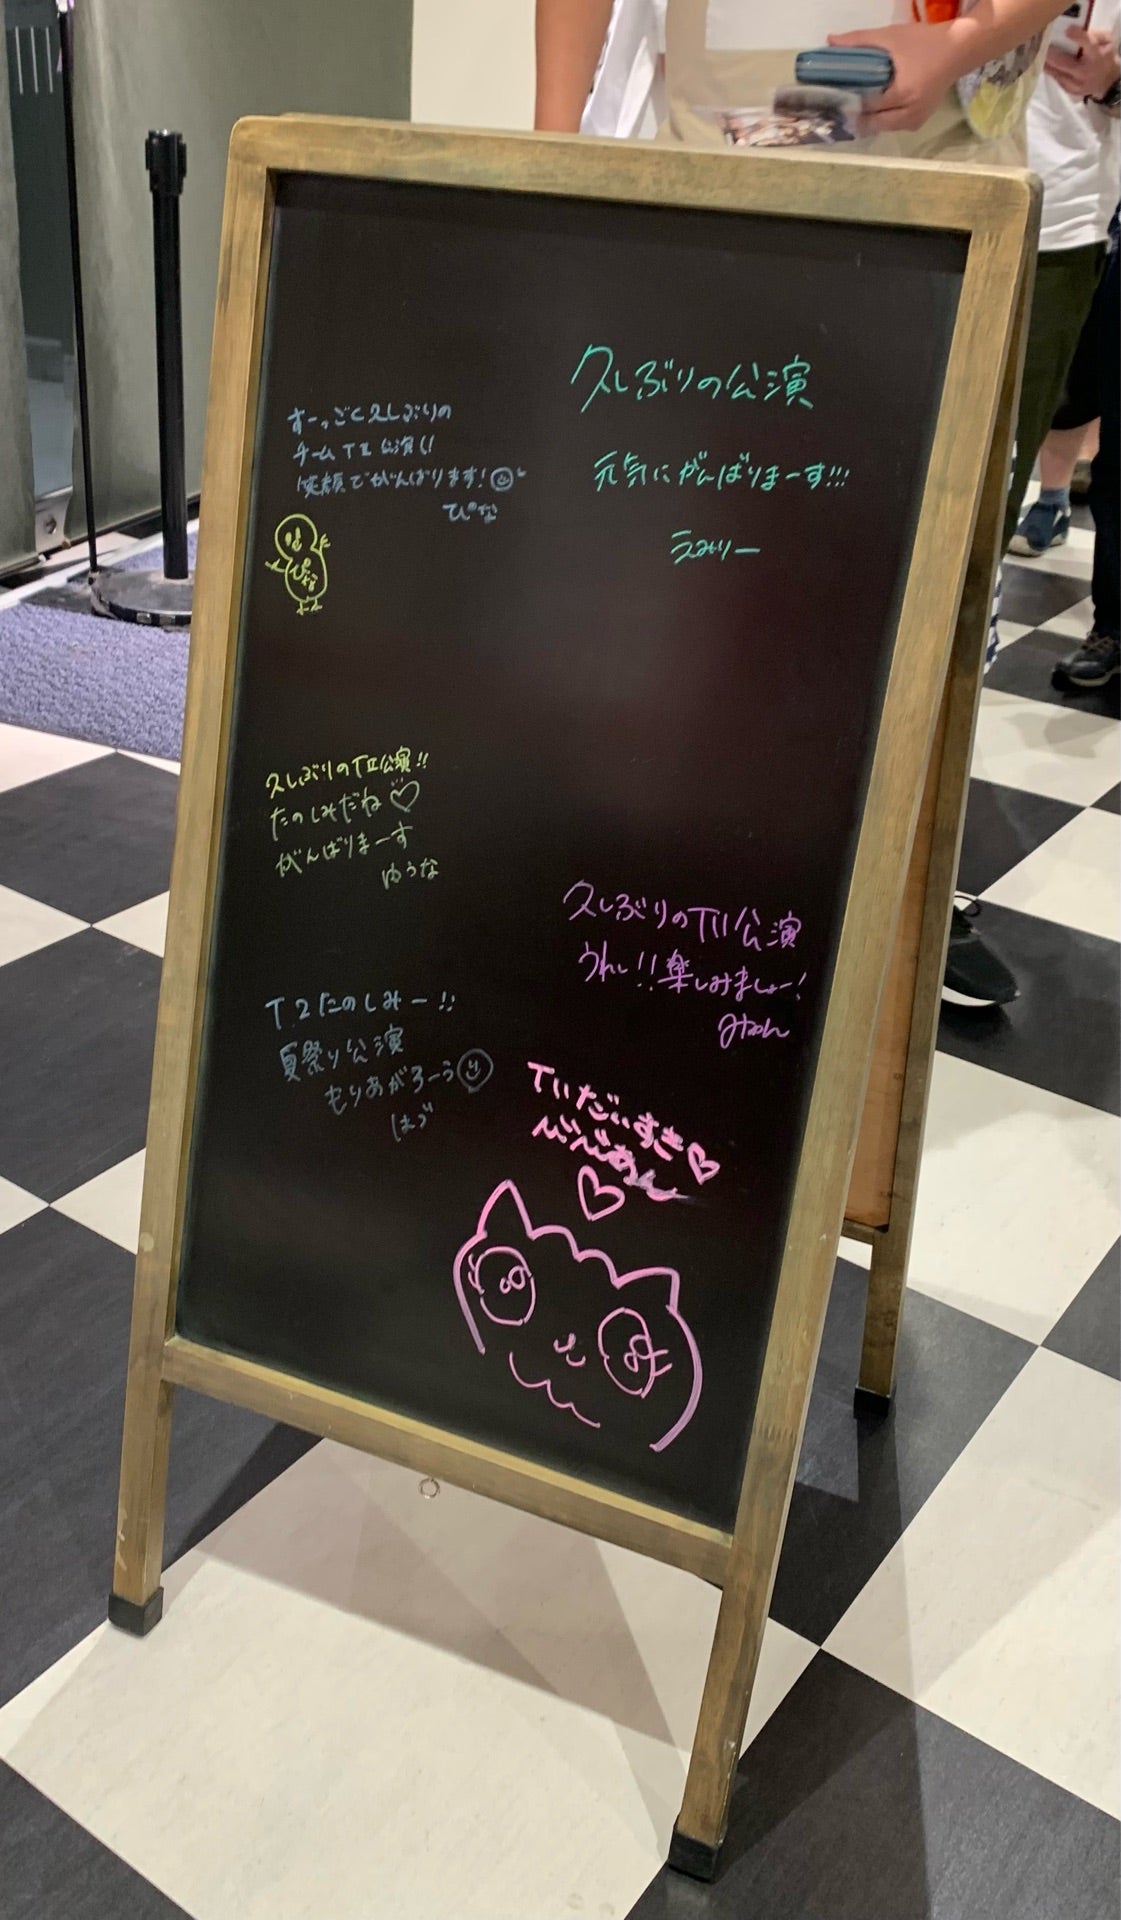 すーっごく久しぶりの
チームTⅡ公演!!
笑顔でがんばります!
ぴな
ぴな
久しぶりの公演
元気にがんばりまーす!!!
えみりー
久しぶりのTⅡ公演!!
たのしみだね♡
がんばりまーす
ゆうな
久しぶりのTII公演
うれし!!楽しみましょー!
みおん
T2たのしみー!!
夏祭り公演
もりあがろーう
はづ
TIIだいすき♡
びびあん